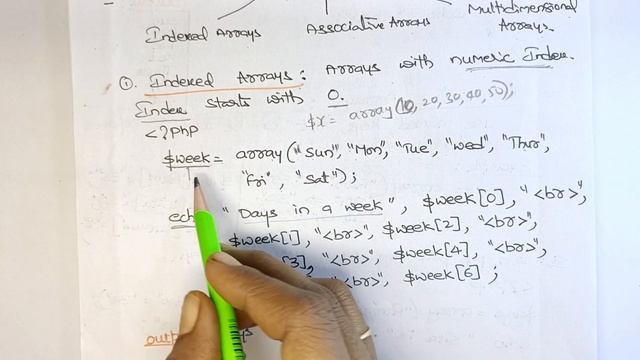 Indexed Arrays Associative Arrays Multidimensional Arrays.
① Indexed Arrays: Arrays with numeric Index.
Index starts with 0.
$x = array(10, 20, 30, 40, 50);
<?PhP
$week = array ("Sun", "Mon", "Tue", "Wed", "Thur",
"Fri", "Sat");
ech " Days in a week", $week[0], "<br>",
$week[1], "<br>", $week[2], "<br>",
[3], "<br>", $week[4], "<br>",
"<br>", $week[6];